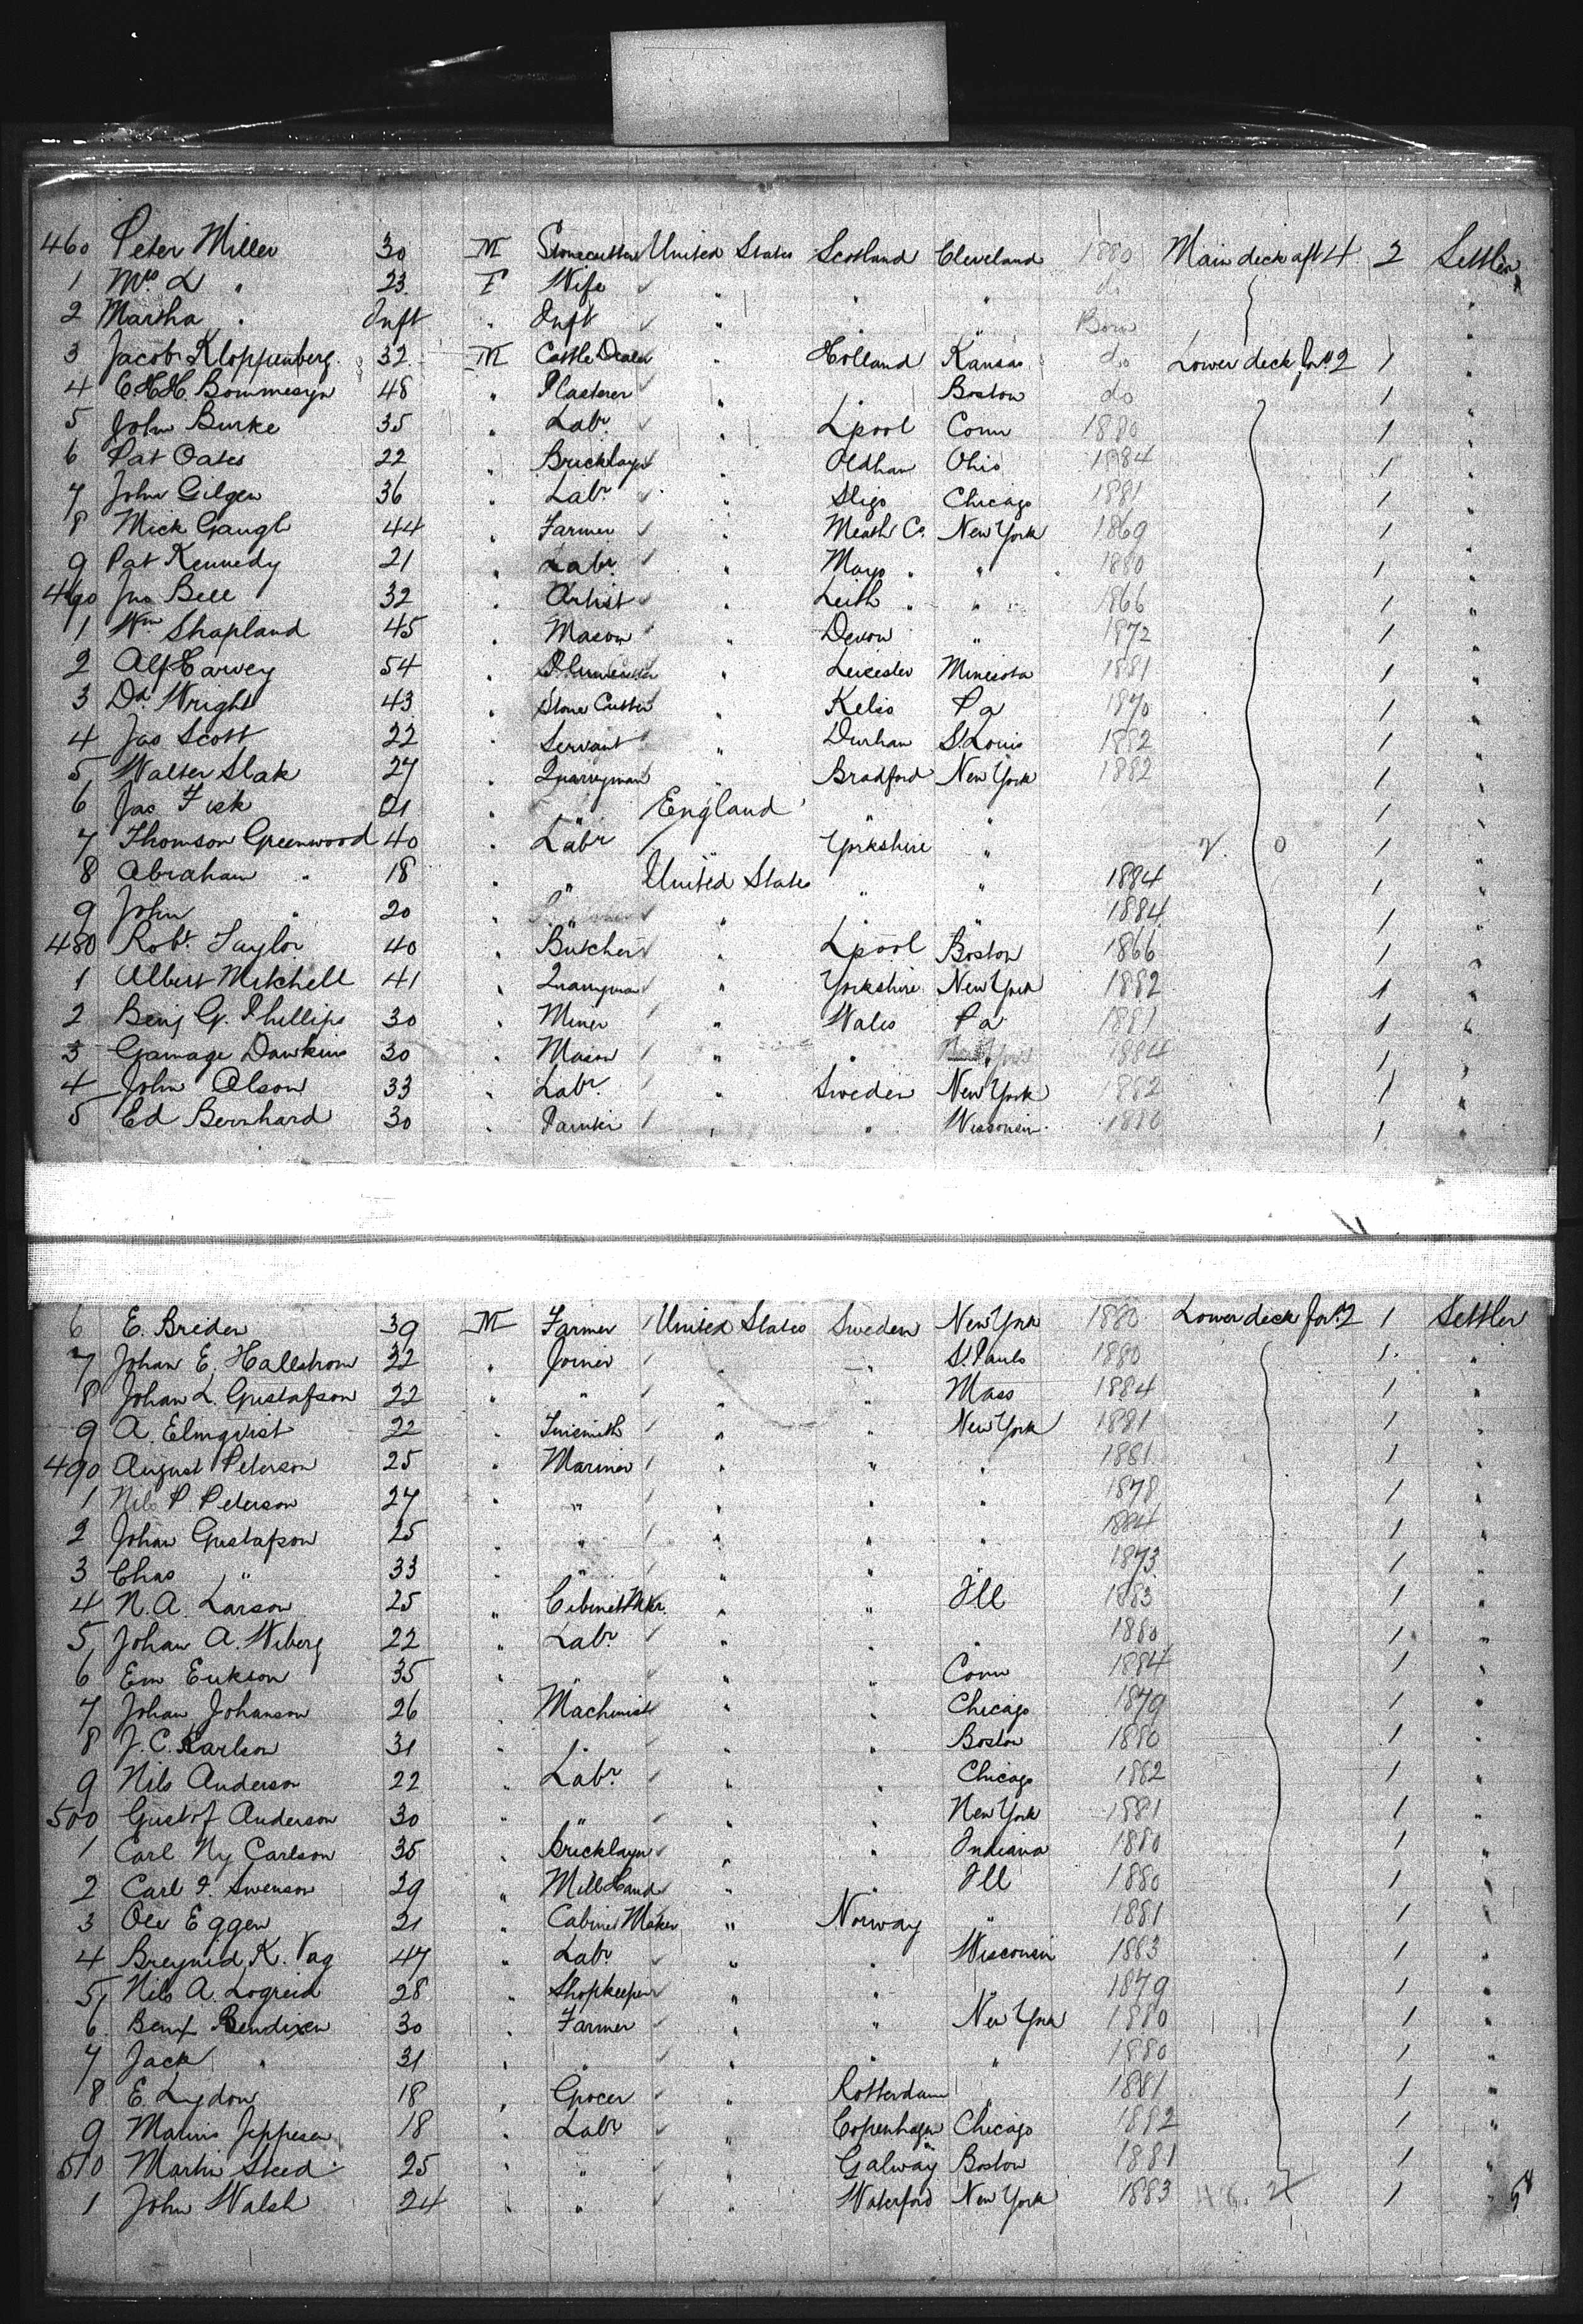 460 Peter Miller 30 M Stonecutter United States Scotland Cleveland 1880 Main deck aft 4 2 Settler
1 Mrs L " 23 F Wife " " " do "
2 Martha " Inft " Inft " " " Born "
3 Jacob Kloppenberg 32 M Cattle Dealer " Holland Kansas do Lower deck for'd 2 1 "
4 C.H.H. Bommesyn 48 " Plasterer " " Boston do 1 "
5 John Burke 35 " Labr " Lpool Conn 1880 1 "
6 Pat Oates 22 " Bricklayer " Oldham Ohio 1884 1 "
7 John Gilgen 36 " Labr " Sligo Chicago 1881 1 "
8 Mick Gaugh 44 " Farmer " Meath Co. New York 1869 1 "
9 Pat Kennedy 21 " Labr " Mayo " " 1880 1 "
490 Jno Bell 32 " Artist " Leith " " 1866 1 "
1 Wm Shapland 45 " Mason " Devon " 1872 1 "
2 Alf Harvey 54 " " Leicester Minesota 1881 1 "
3 Dd Wright 43 " Stone Cutter " Kelso Pa 1870 1 "
4 Jas Scott 22 " Servant " Durham St Louis 1882 1 "
5 Walter Slak 27 " Quarryman " Bradford New York 1882 1 "
6 Jas Fisk 21 " " England " " 1 "
7 Thomson Greenwood 40 " Labr " Yorkshire " 0 1 "
8 Abraham " 18 " " United States " " 1884 1 "
9 John " 20 " " " " 1884 1 "
480 Robt Taylor 40 " Butcher " Lpool Boston 1866 1 "
1 Albert Mitchell 41 " Quarryman " Yorkshire New York 1882 1 "
2 Benj G. Phillips 30 " Miner " Wales Pa 1881 1 "
3 Gamage Dawkins 30 " Mason " " 1884 1 "
4 John Olson 33 " Labr " Sweden New York 1882 1 "
5 Ed Bernhard 30 " Painter " " Wisconsin 1880 1 "
6 E. Breden 39 M Farmer United States Sweden New York 1880 Lower deck for'd 2 1 Settler
7 Johan E. Hallstrom 22 " Joiner " " St. Pauls 1880 1 "
8 Johan L. Gustafson 22 " " " " Mass 1884 1 "
9 A. Elmqvist 22 " Tinsmith " " New York 1881 1 "
490 August Peterson 25 " Mariner " " " 1881 1 "
1 Nils P. Peterson 27 " " " " " 1878 1 "
2 Johan Gustafson 25 " " " " " 1884 1 "
3 Chas " 33 " " " " " 1873 1 "
4 N. A. Larson 25 " Cibinet Mkr. " " Ill 1883 1 "
5 Johan A. Wiberg 22 " Labr " " " 1880 1 "
6 Em Erikson 35 " " " " Conn 1884 1 "
7 Johan Johanson 26 " Machinist " " Chicago 1879 1 "
8 J. C. Karlson 31 " " " " Boston 1880 1 "
9 Nils Anderson 22 " Labr " " Chicago 1882 1 "
500 Gustof Anderson 30 " " " " New York 1881 1 "
1 Carl Ny Carlson 35 " Bricklayer " " Indiana 1880 1 "
2 Carl F. Swenson 29 " Mill Hand " " Ill 1880 1 "
3 Ole Eggen 21 " Cabinet Maker " Norway " 1881 1 "
4 Breynid K. Vag 47 " Labr " " Wisconsin 1883 1 "
5 Nils A. Logreid 28 " Shopkeeper " " " 1879 1 "
6 Bent Bendixen 30 " Farmer " " New York 1880 1 "
7 Jack " 31 " " " " " 1880 1 "
8 E. Lydon 18 " Grocer " Rotterdam " 1881 1 "
9 Marius Jeppesen 18 " Labr " Copenhagen Chicago 1882 1 "
510 Martin Skeed 25 " " " Galway Boston 1881 1 "
1 John Walsh 24 " " " Waterford New York 1883 1 " 58